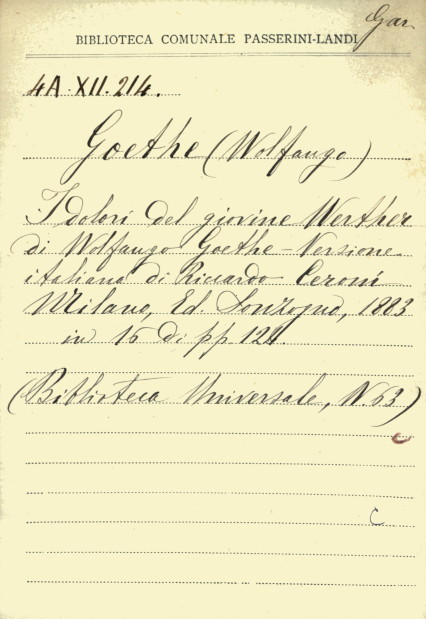 Gar.
BIBLIOTECA COMUNALE PASSERINI-LANDI
4A·XII.214.
Goethe (Wolfango)
I dolori del giovine Werther
di Wolfango Goethe - Versione
italiana di Riccardo Ceroni
Milano, Ed. Sonzogno, 1883
in 16 di pp 124.
(Biblioteca Universale, N 63)
C
C